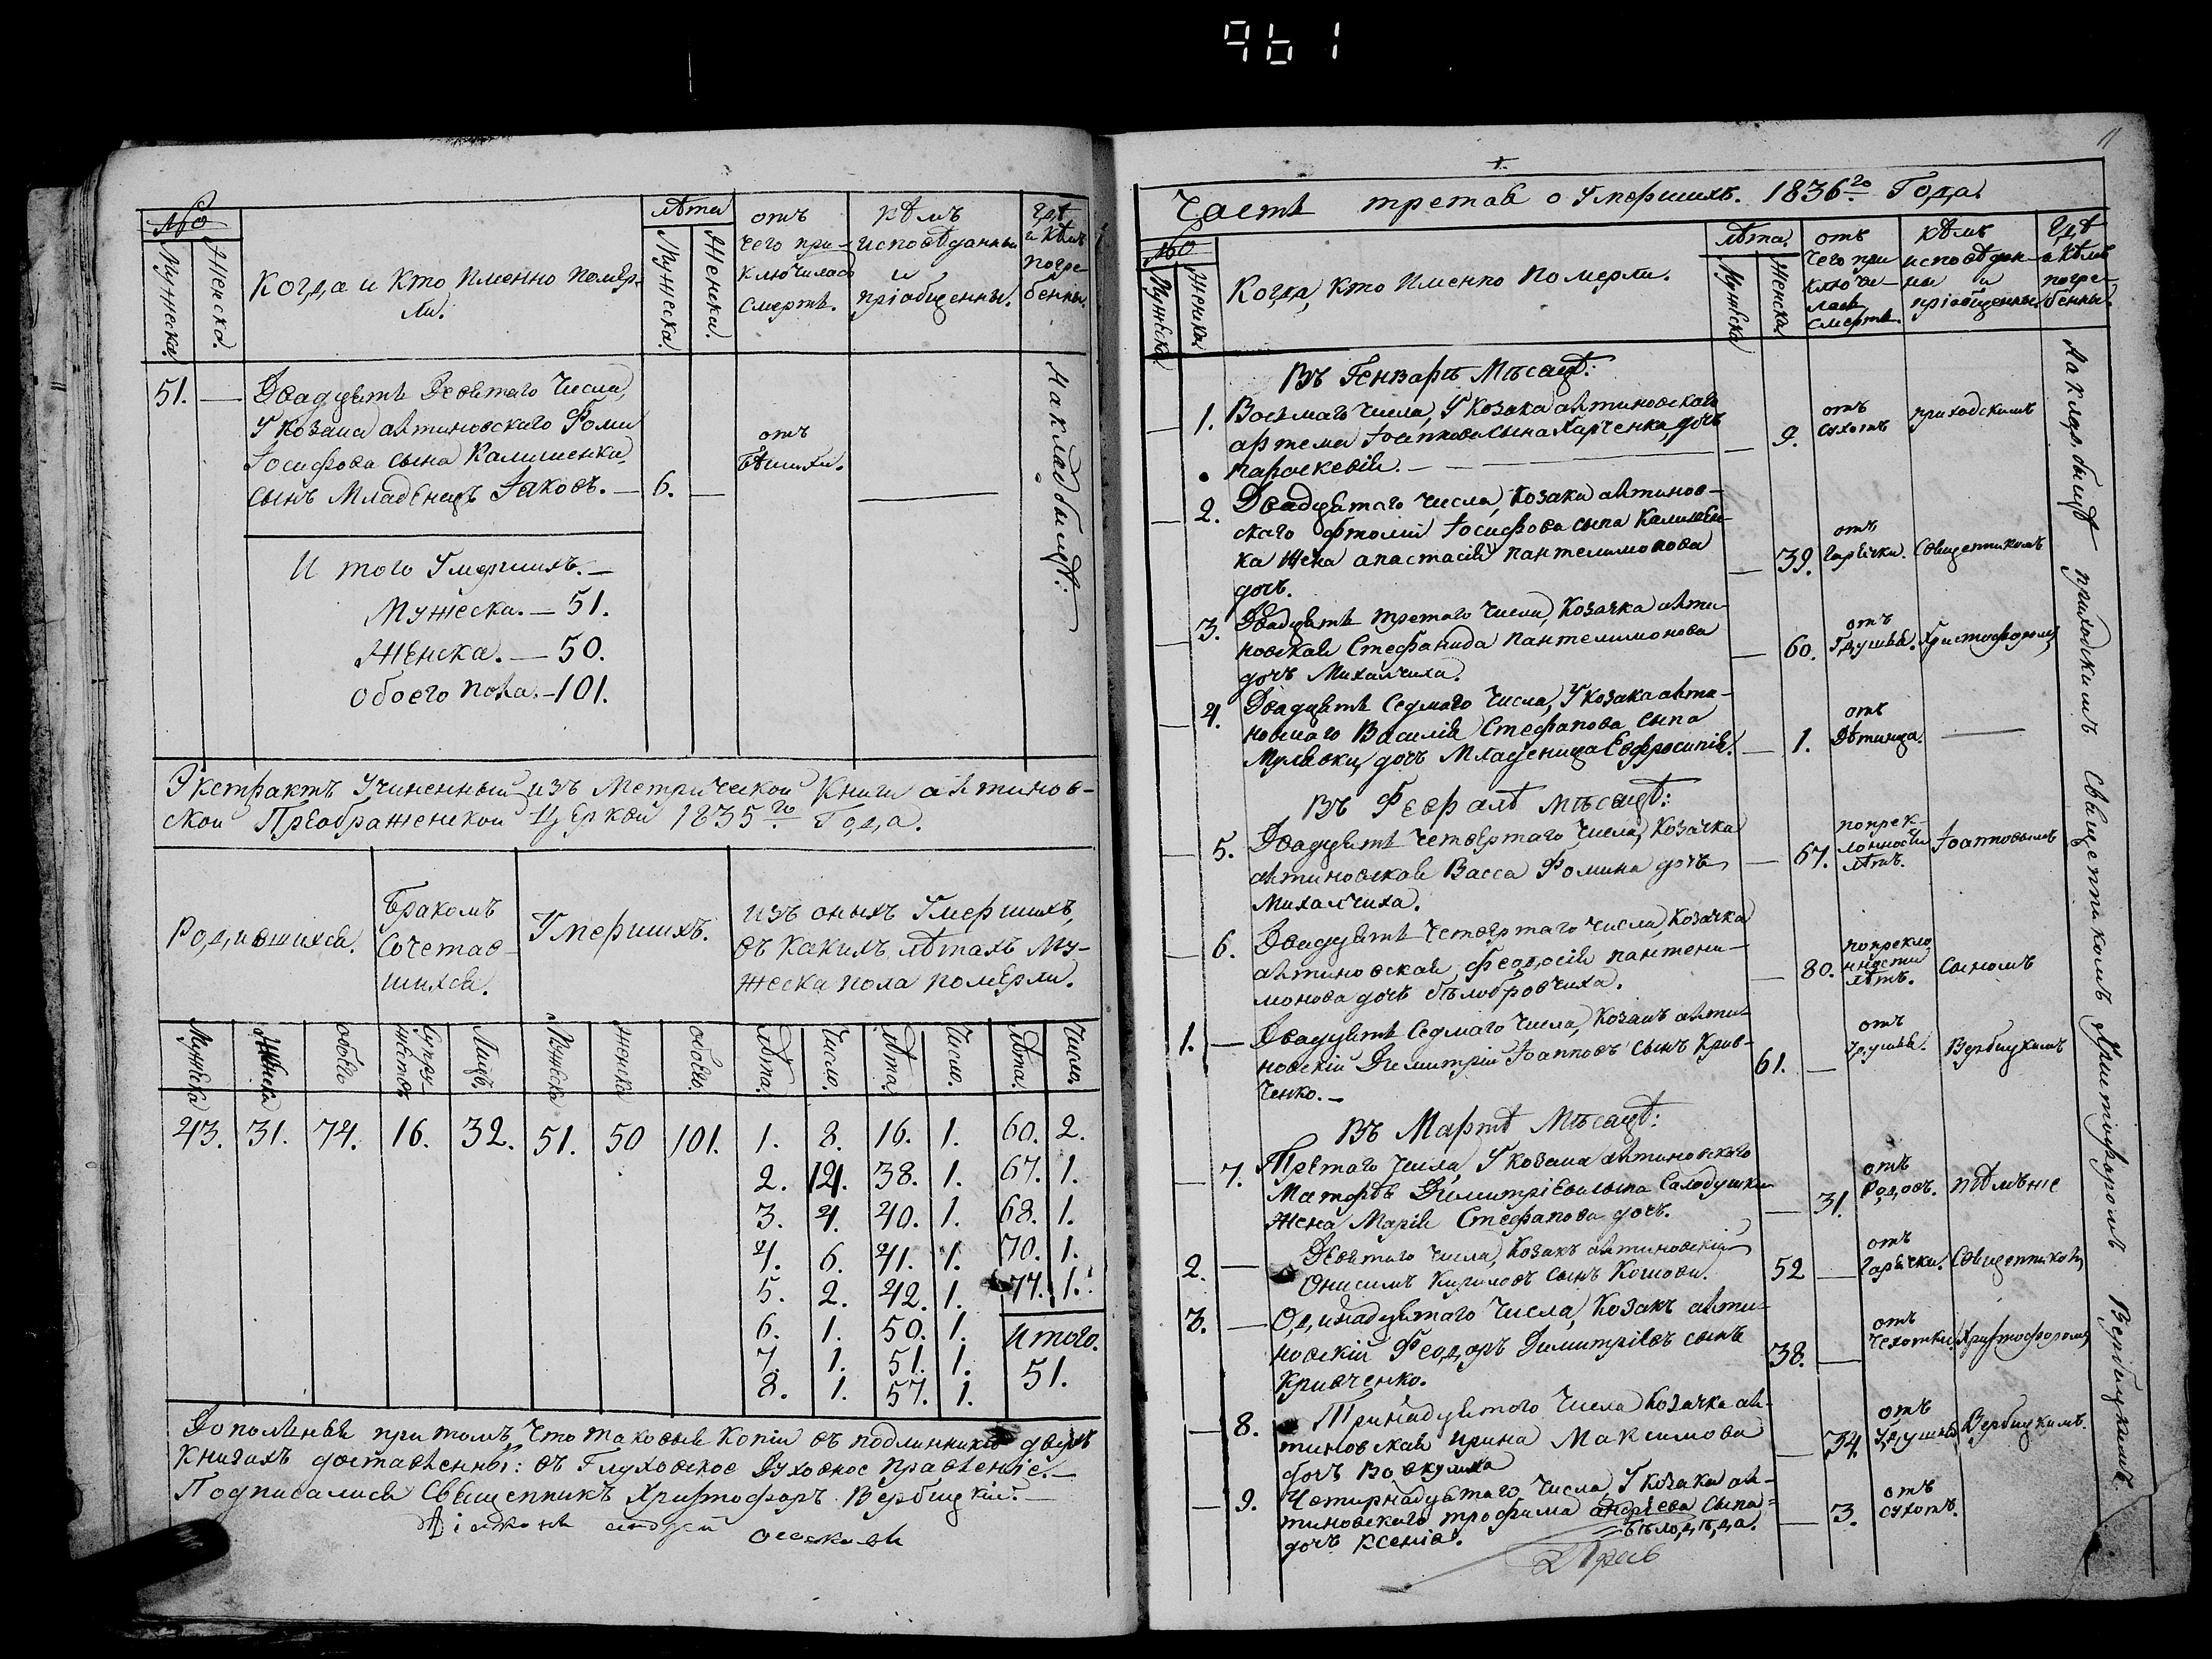 961
№
Мужеска.
Женска.
Когда и кто Именно помер-
ли.
лѣта
Мужеска.
Женска.
отъ
чего при-
ключилась
смерть.
кѣмъ
исповѣданны
и
пріобщенны.
Гдѣ
и кѣмъ
погре-
бенны.
51. — Двадцять Девятаго Числа,
У козака антиновского Фомы
Іосифова сына Калишенка,
сынъ Младенецъ Іаковъ. — 6. —
отъ
Бѣшихи.
На кладбищѣ:
И того Умершихъ. —
Мужеска. — 51.
Женска. — 50.
Обоего пола. — 101.
Экстрактъ Учиненный изъ Метрической Книги антинов-
ской Преображенской Церкви 1835го Года.
Родившихся.
Бракомъ
Сочетав-
шихся.
Умершихъ.
изъ оныхъ Умершихъ,
въ какихъ лѣтахъ Му-
жеска пола померли.
Мужеска
Женска
обоегъ
Супру
жествъ
Лицъ.
Мужеска
женска
обоегъ.
лѣта.
Число.
лѣта
Число.
лѣта.
Число.
43. 31. 74. 16. 32. 51. 50 101. 1. 8. 16. 1. 60. 2.
2. 121. 38. 1. 67. 1.
3. 4. 40. 1. 68. 1.
4. 6. 41. 1. 70. 1.
5. 2. 42. 1. 77. 1.
6. 1. 50. 1. Итого.
7. 1. 51. 1. 51.
8. 1. 57. 1.
притомъ, что таковыя Копіи въ подлинникѣ двухъ
Книгахъ доставленны: въ Глуховское Духовное Правленіе. —
Подписалися Священникъ Христофоръ Вербицкій. —
11
1.
Часть третая о Умершихъ. 1836го Года.
№
Мужеска
Женска.
Когда, кто Именно Померли.
лѣта.
Мужеска
Женска.
отъ
чего при
ключи-
лась
смерть.
кѣмъ
исповѣдан-
ны и
пріобщенны.
Гдѣ
и кѣмъ
погре-
бенны.
Въ Генварѣ Мѣсяцѣ:
— 1. Восьмагъ Числа, У козака антиновского
артема Іоаннова сына Харченка, дочь
параскевія. — — 9. отъ сухотъ приходскимъ
— 2. Двадцятаго Числа, козака антинов-
скаго Іосифова сына Калишен-
ка жена анастасія пантелимонова
дочь. — 39. отъ гарячки. Священникомъ
— 3. Двадцять третаго Числа, Козачка анти-
новская Стефанида пантелимонова
дочь Михалчиха. — 60. отъ Удушья. Христофоромъ
— 4. Двадцять Седмаго Числа, У козака анти-
новскаго Василія Стефанова сына
Мулявки, дочь Младеница Евфросинія. — 1. отъ Дѣтинца. —
Въ Февралѣ мѣсяцѣ:
— 5. Двадцять Четвертаго Числа, Козачка
антиновская Васса Фомина дочь,
Михалчиха. — 67. попрек-
лонности
лѣтъ. Іоанновымъ
— 6. Двадцять Четвертаго Числа, Козачка
антиновская Феодосія пантели-
монова дочь бѣлобровчиха. — 80. попрекло
нности
лѣтъ. Сыномъ
1. — Двадцять Седмаго Числа, Козакъ анти-
новскій Димитрій Іоанновъ сынъ Крив-
ченко. — 61. — отъ Удушья. Вербицкимъ
Въ Мартѣ Мѣсяцѣ:
— 7. Третаго Числа, У козака антиновского
Матфѣя Димитріева сына
жена Марія Стефанова дочь. — 31. отъ Родовъ.
2. — Девятаго Числа, Козакъ антиновскій
Онисимъ Кириловъ сынъ 52 — отъ Гарячки. Священникомъ
3. — Одинадцятаго Числа, Козакъ анти-
новскій Феодоръ Димитріевъ сынъ
Кривченко. 38. — отъ Чехотки. Христофоромъ
— 8. Тринадцятого Числа Козачка ан-
тиновская ирина Максимова
дочь Вовкулиха — 34 отъ Удушья Вербицкимъ.
— 9. Четирнадцятаго Числа, У козака ан-
тиновскаго трофима андреева сына
Бѣлодѣда.
дочь Ксенія. — 3. отъ сухотъ.
На кладбищѣ приходскимъ Священникомъ Христофоромъ Вербицкимъ.